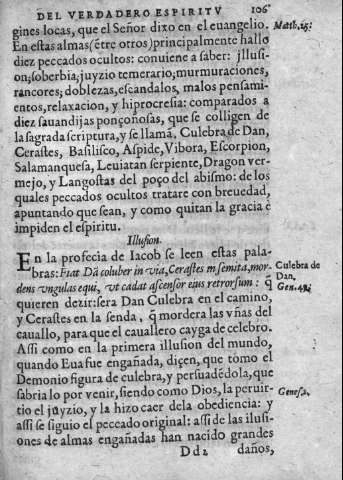 DEL VERDADERO ESPIRITV 106
gines locas, que el Señor dixo en el euangelio. Math.25:
En estas almas (ētre otros) principalmente hallo
diez peccados ocultos: conuiene a saber: jllusi-
on; soberbia; juyzio temerario; murmuraciones,
rancores; doblezas, escandalos, malos pensami-
entos, relaxacion, y hiprocresia: comparados a
diez sauandijas ponçoñosas, que se colligen de
la sagrada scriptura, y se llamã, Culebra de Dan,
Cerastes, Basilisco, Aspide, Vibora, Escorpion,
Salamanquesa, Leuiatan serpiente, Dragon ver-
mejo, y Langostas del poço del abismo: de los
quales peccados ocultos tratare con breuedad,
apuntando que sean, y como quitan la gracia ē
impiden el espiritu.
Illusion.
En la profecia de Iacob se leen estas pala-
bras: Fiat Dã coluber in via, Cerastes in semita, mor Culebra de
dens vngulas equi, vt cadat ascensor eius retrorsum: q̃ Dan,
quieren dezir: sera Dan Culebra en el camino, Gen.49.
y Cerastes en la senda, q̃ mordera las vñas del
cauallo, para que el cauallero cayga de celebro.
Assi como en la primera illusion del mundo,
quando Eua fue engañada, diçen, que tomo el
Demonio figura de culebra, y persuadēdola, que
sabria lo por venir, siendo como Dios, la peruir- Genes.3.
tio el juyzio, y la hizo caer dela obediencia: y
assi se siguio el peccado original: assi de las ilusi-
ones de almas engañadas han nacido grandes
Dd2 daños,